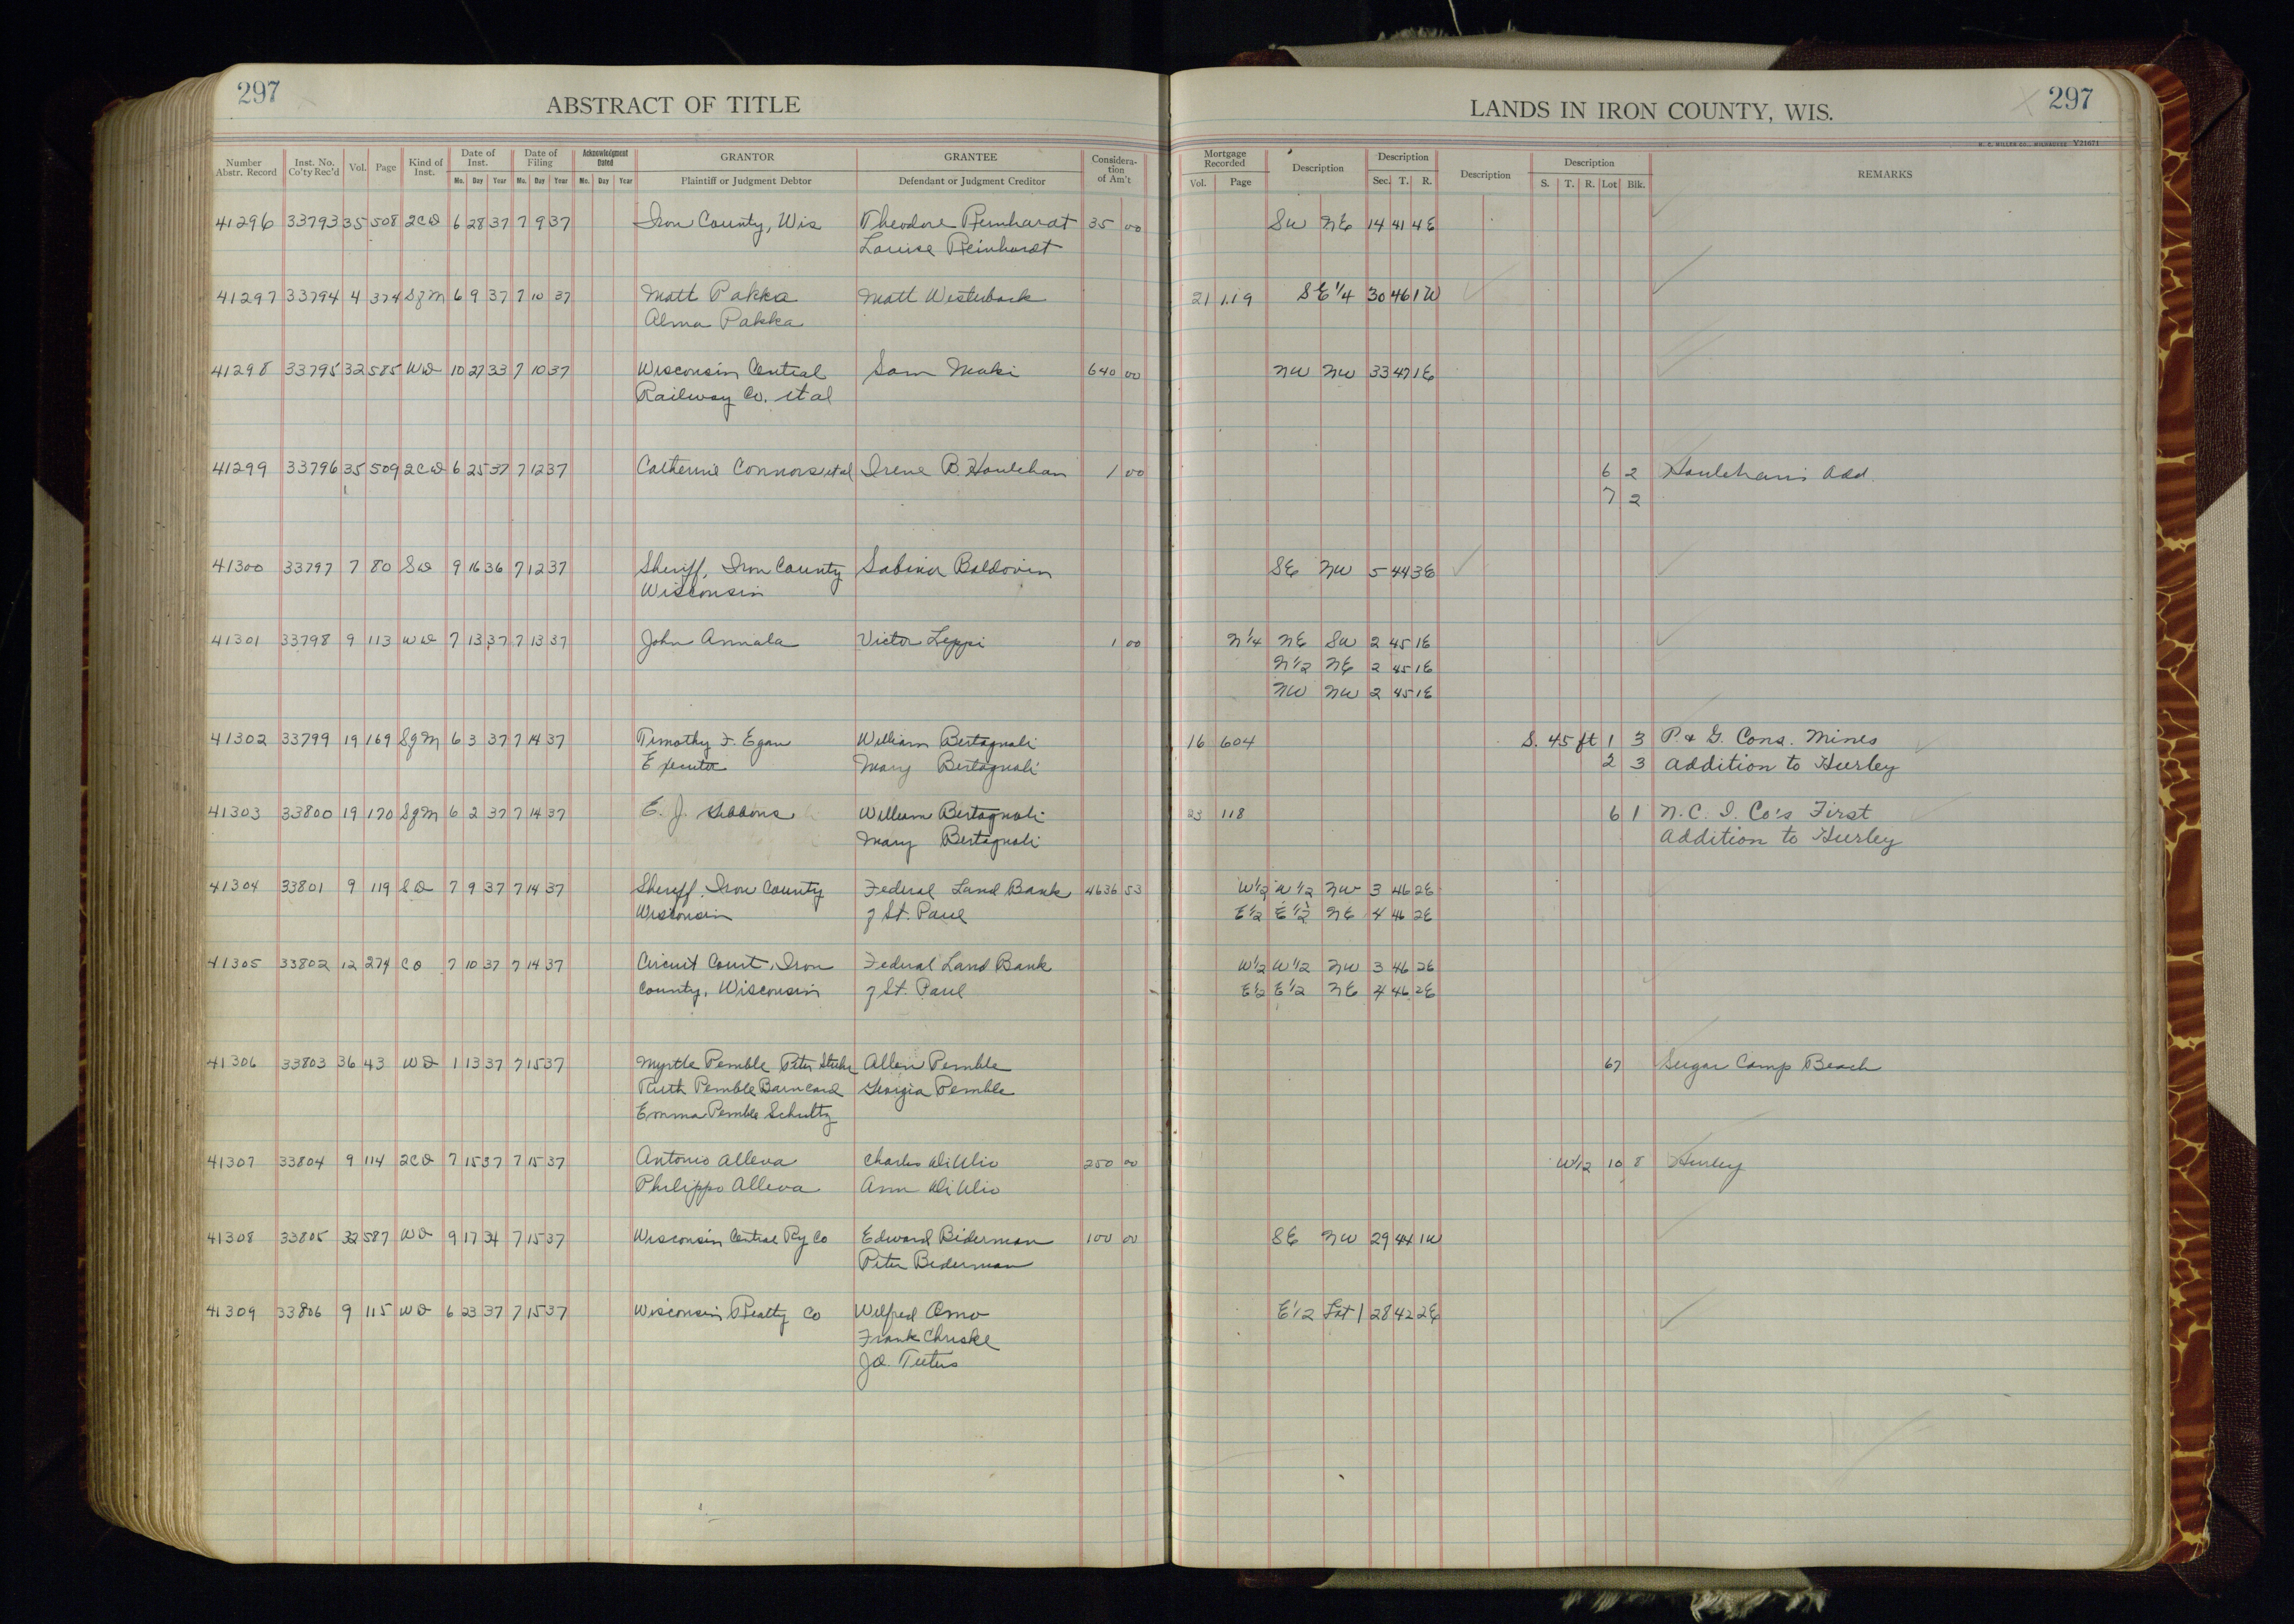 297
ABSTRACT OF TITLE
LANDS IN IRON COUNTY, WIS.
297
H. C. MILLER CO., MILWAUKEE Y21671
Number Abstr. Record Inst. No. Co'ty Rec'd Vol. Page Kind of Inst. Date of Inst. Mo. Day Year Date of Filing Mo. Day Year Acknowledgment Dated Mo. Day Year GRANTOR Plaintiff or Judgment Debtor GRANTEE Defendant or Judgment Creditor Consideration of Am't Mortgage Recorded Vol. Page Description Description Sec. T. R. Description Description S. T. R. Lot Blk. REMARKS
41296 33793 35 508 2CD 6 28 37 7 9 37 Iron County, Wis Theodore Reinhardt 35 00 SW NE 14 41 4E
Louise Reinhardt
41297 33794 4 374 SgM 6 9 37 7 10 37 Matt Pakka Matt Westerback 21 119 SE 1/4 30 46 1W
Alma Pakka
41298 33795 32 585 WD 10 27 33 7 10 37 Wisconsin Central Sam Maki 640 00 NW NW 33 47 1E
Railway Co. et al
41299 33796 35 509 2CD 6 25 37 7 12 37 Catherine Connors et al Irene B. Houlehan 1 00 6 2 Houlehan's Add.
7 2
41300 33797 7 80 SD 9 16 36 7 12 37 Sheriff, Iron County Sabina Baldovin SE NW 5 44 3E
Wisconsin
41301 33798 9 113 WD 7 13 37 7 13 37 John Annala Victor Leppi 1 00 N 1/4 NE SW 2 45 1E
N 1/2 NE 2 45 1E
NW NW 2 45 1E
41302 33799 19 169 SgM 6 3 37 7 14 37 Timothy F. Egan William Bertagnoli 16 604 S. 45 ft 1 3 P. & G. Cons. Mines
Executor Mary Bertagnoli 2 3 Addition to Hurley
41303 33800 19 170 SgM 6 2 37 7 14 37 E. J. Gibbons William Bertagnoli 23 118 6 1 N. C. I. Co's First
Mary Bertagnoli Addition to Hurley
41304 33801 9 119 SD 7 9 37 7 14 37 Sheriff, Iron County Federal Land Bank 4636 53 W 1/2 W 1/2 NW 3 46 2E
Wisconsin of St. Paul E 1/2 E 1/2 NE 4 46 2E
41305 33802 12 274 CO 7 10 37 7 14 37 Circuit Court, Iron Federal Land Bank W 1/2 W 1/2 NW 3 46 2E
County, Wisconsin of St. Paul E 1/2 E 1/2 NE 4 46 2E
41306 33803 36 43 WD 1 13 37 7 15 37 Myrtle Pemble Peter Allen Pemble 67 Sugar Camp Beach
Ruth Pemble Barncard Georgia Pemble
Emma Pemble Schultz
41307 33804 9 114 2CD 7 15 37 7 15 37 Antonio Alleva Charles DiUlio 250 00 W 1/2 10 8 Hurley
Philippo Alleva Ann DiUlio
41308 33805 32 587 WD 9 17 34 7 15 37 Wisconsin Central Ry Co Edward Biderman 100 00 SE NW 29 44 1W
Peter Biderman
41309 33806 9 115 WD 6 23 37 7 15 37 Wisconsin Realty Co Wilfred Omo E 1/2 Lot 1 28 42 2E
Frank Chuske